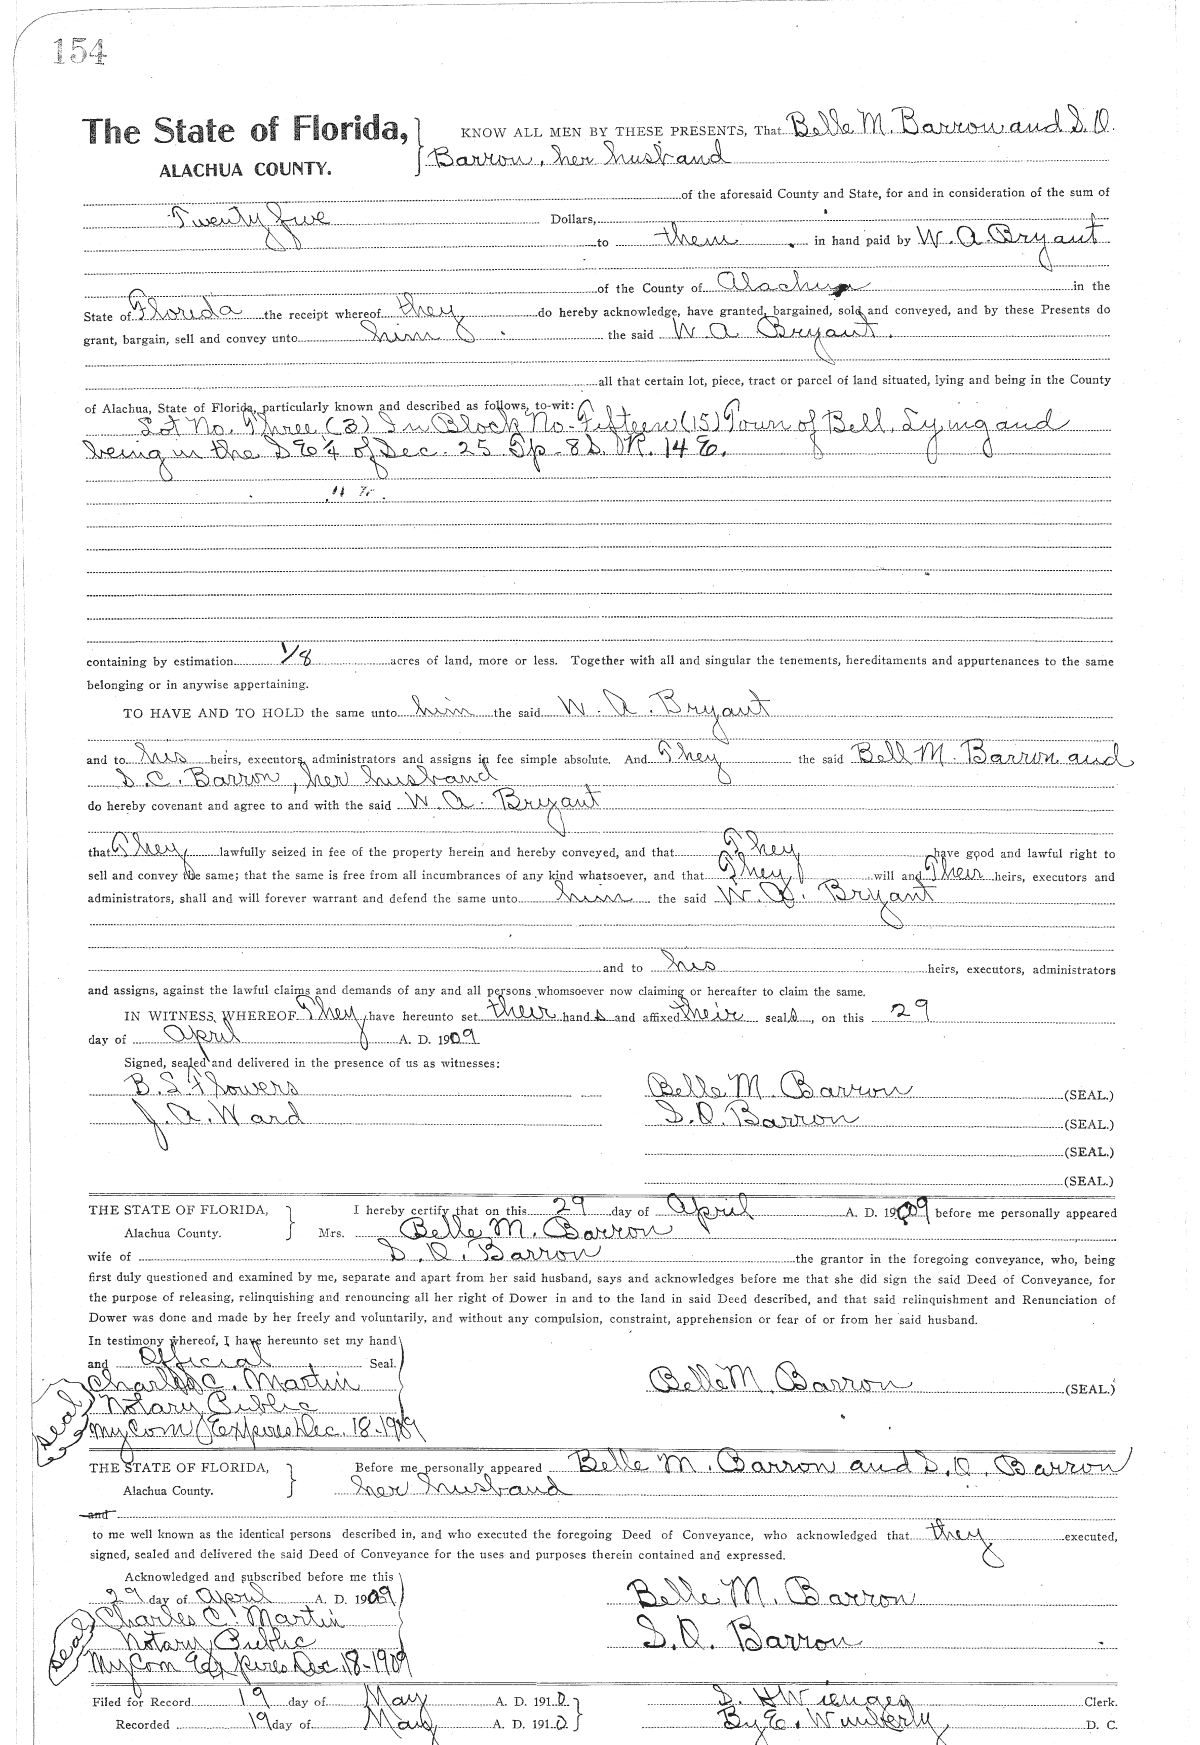 154
The State of Florida, KNOW ALL MEN BY THESE PRESENTS, That Belle M. Barron and S. O.
ALACHUA COUNTY. Barron, her husband
of the aforesaid County and State, for and in consideration of the sum of
Twenty five Dollars,
to them in hand paid by W. A. Bryant
of the County of Alachua in the
State of Florida the receipt whereof they do hereby acknowledge, have granted, bargained, sold and conveyed, and by these Presents do
grant, bargain, sell and convey unto him the said W. A Bryant.
all that certain lot, piece, tract or parcel of land situated, lying and being in the County
of Alachua, State of Florida, particularly known and described as follows, to-wit:
Lot No. Three (3) In Block No. Fifteen (15) Town of Bell, Lying and
being in the S E 1/4 of Sec. 25 Tp. 8 S. R. 14 E.
containing by estimation 1/8 acres of land, more or less. Together with all and singular the tenements, hereditaments and appurtenances to the same
belonging or in anywise appertaining.
TO HAVE AND TO HOLD the same unto him the said W. A. Bryant
and to his heirs, executors, administrators and assigns in fee simple absolute. And They the said Bell M. Barron and
S. C. Barron, her husband
do hereby covenant and agree to and with the said W. A. Bryant
that They lawfully seized in fee of the property herein and hereby conveyed, and that They have good and lawful right to
sell and convey the same; that the same is free from all incumbrances of any kind whatsoever, and that They will and Their heirs, executors and
administrators, shall and will forever warrant and defend the same unto him the said W. A. Bryant
and to his heirs, executors, administrators
and assigns, against the lawful claims and demands of any and all persons whomsoever now claiming or hereafter to claim the same.
IN WITNESS WHEREOF They have hereunto set their hands and affixed their seals, on this 29
day of April A. D. 1909
Signed, sealed and delivered in the presence of us as witnesses:
B. S. Flowers Belle M. Barron (SEAL.)
J. A. Ward S. O. Barron (SEAL.)
(SEAL.)
(SEAL.)
THE STATE OF FLORIDA, I hereby certify that on this 29 day of April A. D. 1909 before me personally appeared
Alachua County. Mrs. Belle M. Barron
wife of S. O. Barron the grantor in the foregoing conveyance, who, being
first duly questioned and examined by me, separate and apart from her said husband, says and acknowledges before me that she did sign the said Deed of Conveyance, for
the purpose of releasing, relinquishing and renouncing all her right of Dower in and to the land in said Deed described, and that said relinquishment and Renunciation of
Dower was done and made by her freely and voluntarily, and without any compulsion, constraint, apprehension or fear of or from her said husband.
In testimony whereof, I have hereunto set my hand
and Official Seal.
Charles C. Martin Belle M. Barron (SEAL.)
seal Notary Public
My Com Expires Dec. 18-1909
THE STATE OF FLORIDA, Before me personally appeared Belle M. Barron and S. O. Barron
Alachua County. her husband
and
to me well known as the identical persons described in, and who executed the foregoing Deed of Conveyance, who acknowledged that they executed,
signed, sealed and delivered the said Deed of Conveyance for the uses and purposes therein contained and expressed.
Acknowledged and subscribed before me this
29 day of April A. D. 1909 Belle M. Barron
Charles C. Martin
seal Notary Public S. O. Barron
My Com Expires Dec 18-1909
Filed for Record 19 day of May A. D. 1910 S. H Wienges Clerk.
Recorded 19 day of May A. D. 1910 By E. Wimberly D. C.